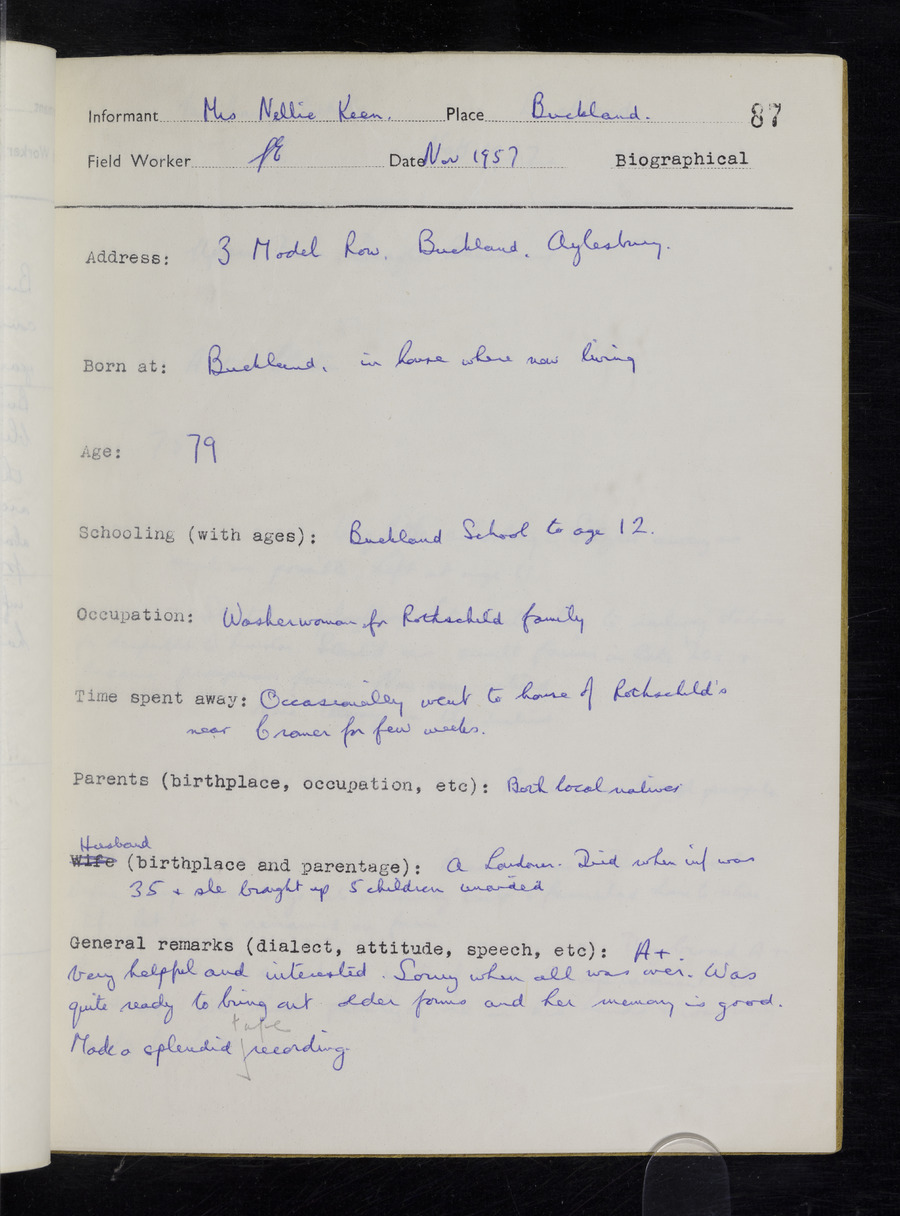 Informant Mrs Nellie Keen. Place Buckland. 87
Field Worker Date Nov 1957 Biographical
Address: 3 Model Row. Buckland. Aylesbury.
Born at: Buckland, in house where now living
Age: 79
Schooling (with ages): Buckland School to age 12.
Occupation: Washerwoman for Rothschild family
Time spent away: Occasionally went to house of Rothschild's
near Cromer for few weeks.
Parents (birthplace, occupation, etc): Both local natives
Husband
Wife (birthplace and parentage): A Londoner. Died when inf was
35 + she brought up 5 children unaided
General remarks (dialect, attitude, speech, etc): A+.
Very helpful and interested. Sorry when all was over. Was
quite ready to bring out older forms and her memory is good.
tape
Made a splendid recording.